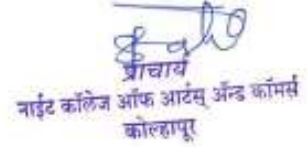 प्राचार्य
नाईट कॉलेज ऑफ आर्टस् अ‍ॅन्ड कॉमर्स
कोल्हापूर